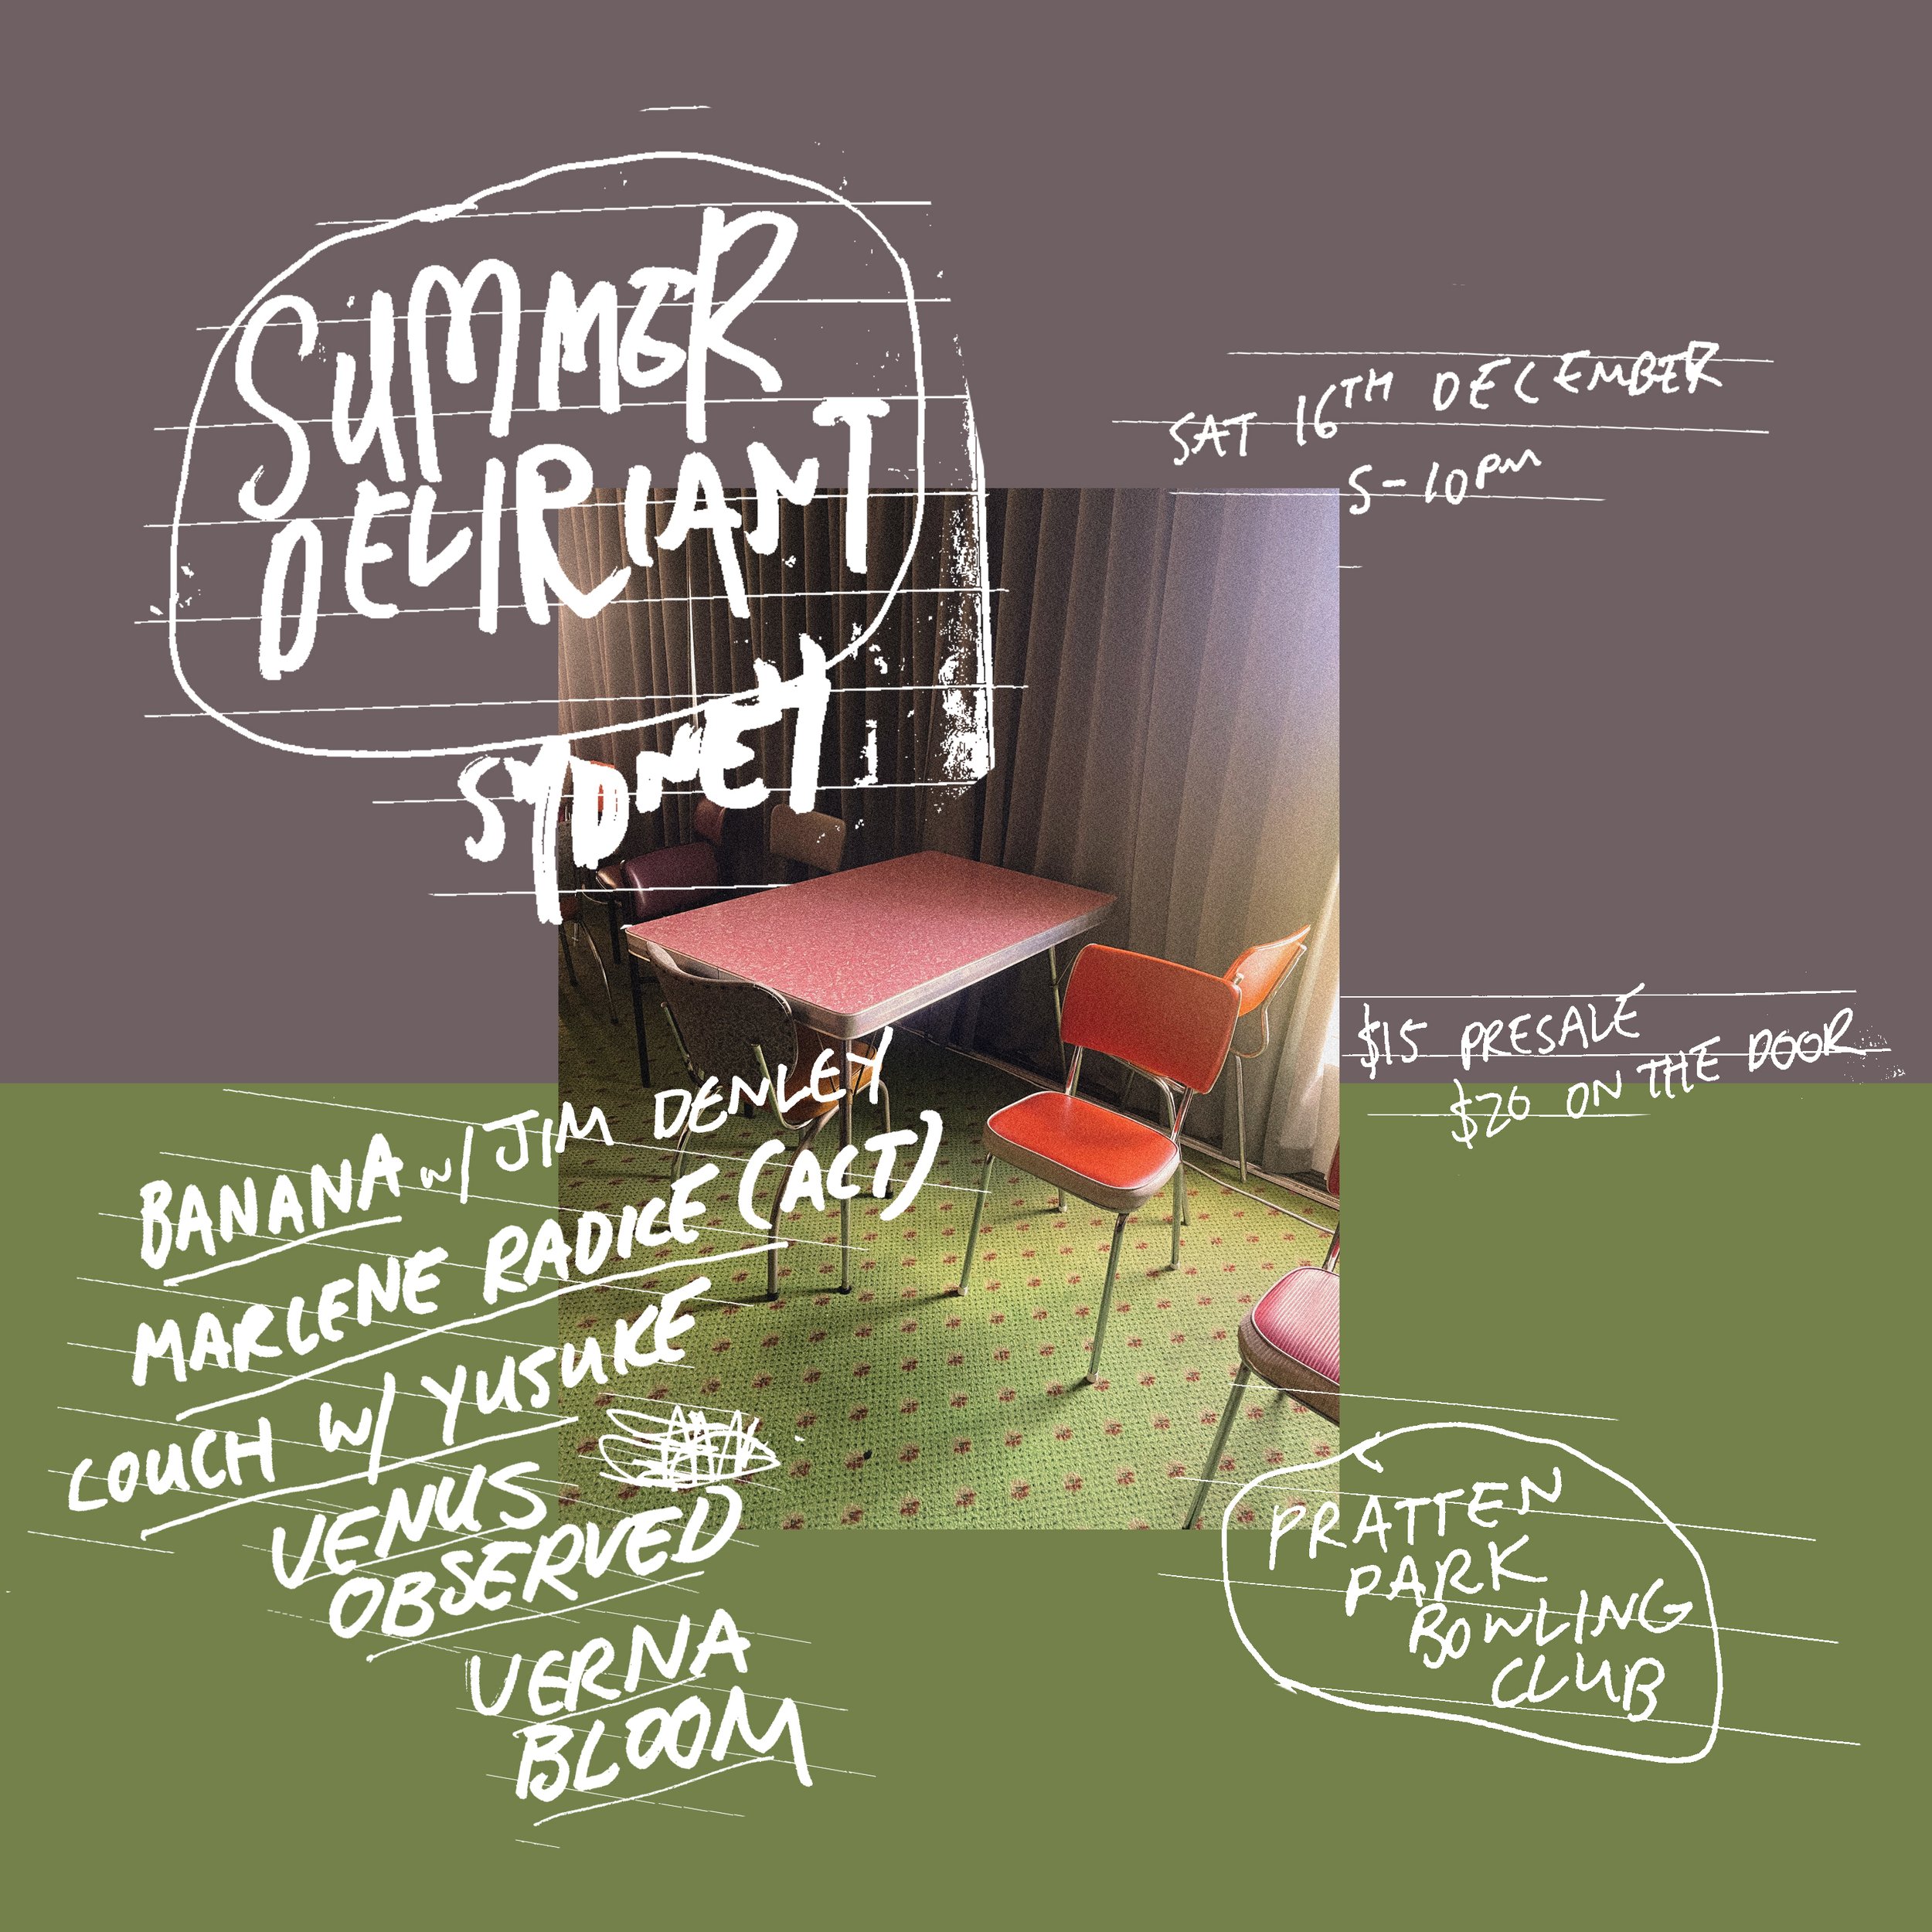 SUMMER
DELIRIANT
SYDNEY
SAT 16TH DECEMBER
5-10PM
$15 PRESALE
$20 ON THE DOOR
BANANA w/ JIM DENLEY
MARLENE RADICE (ACT)
COUCH W/ YUSUKE
VENUS
OBSERVED
VERNA
BLOOM
PRATTEN
PARK
BOWLING
CLUB